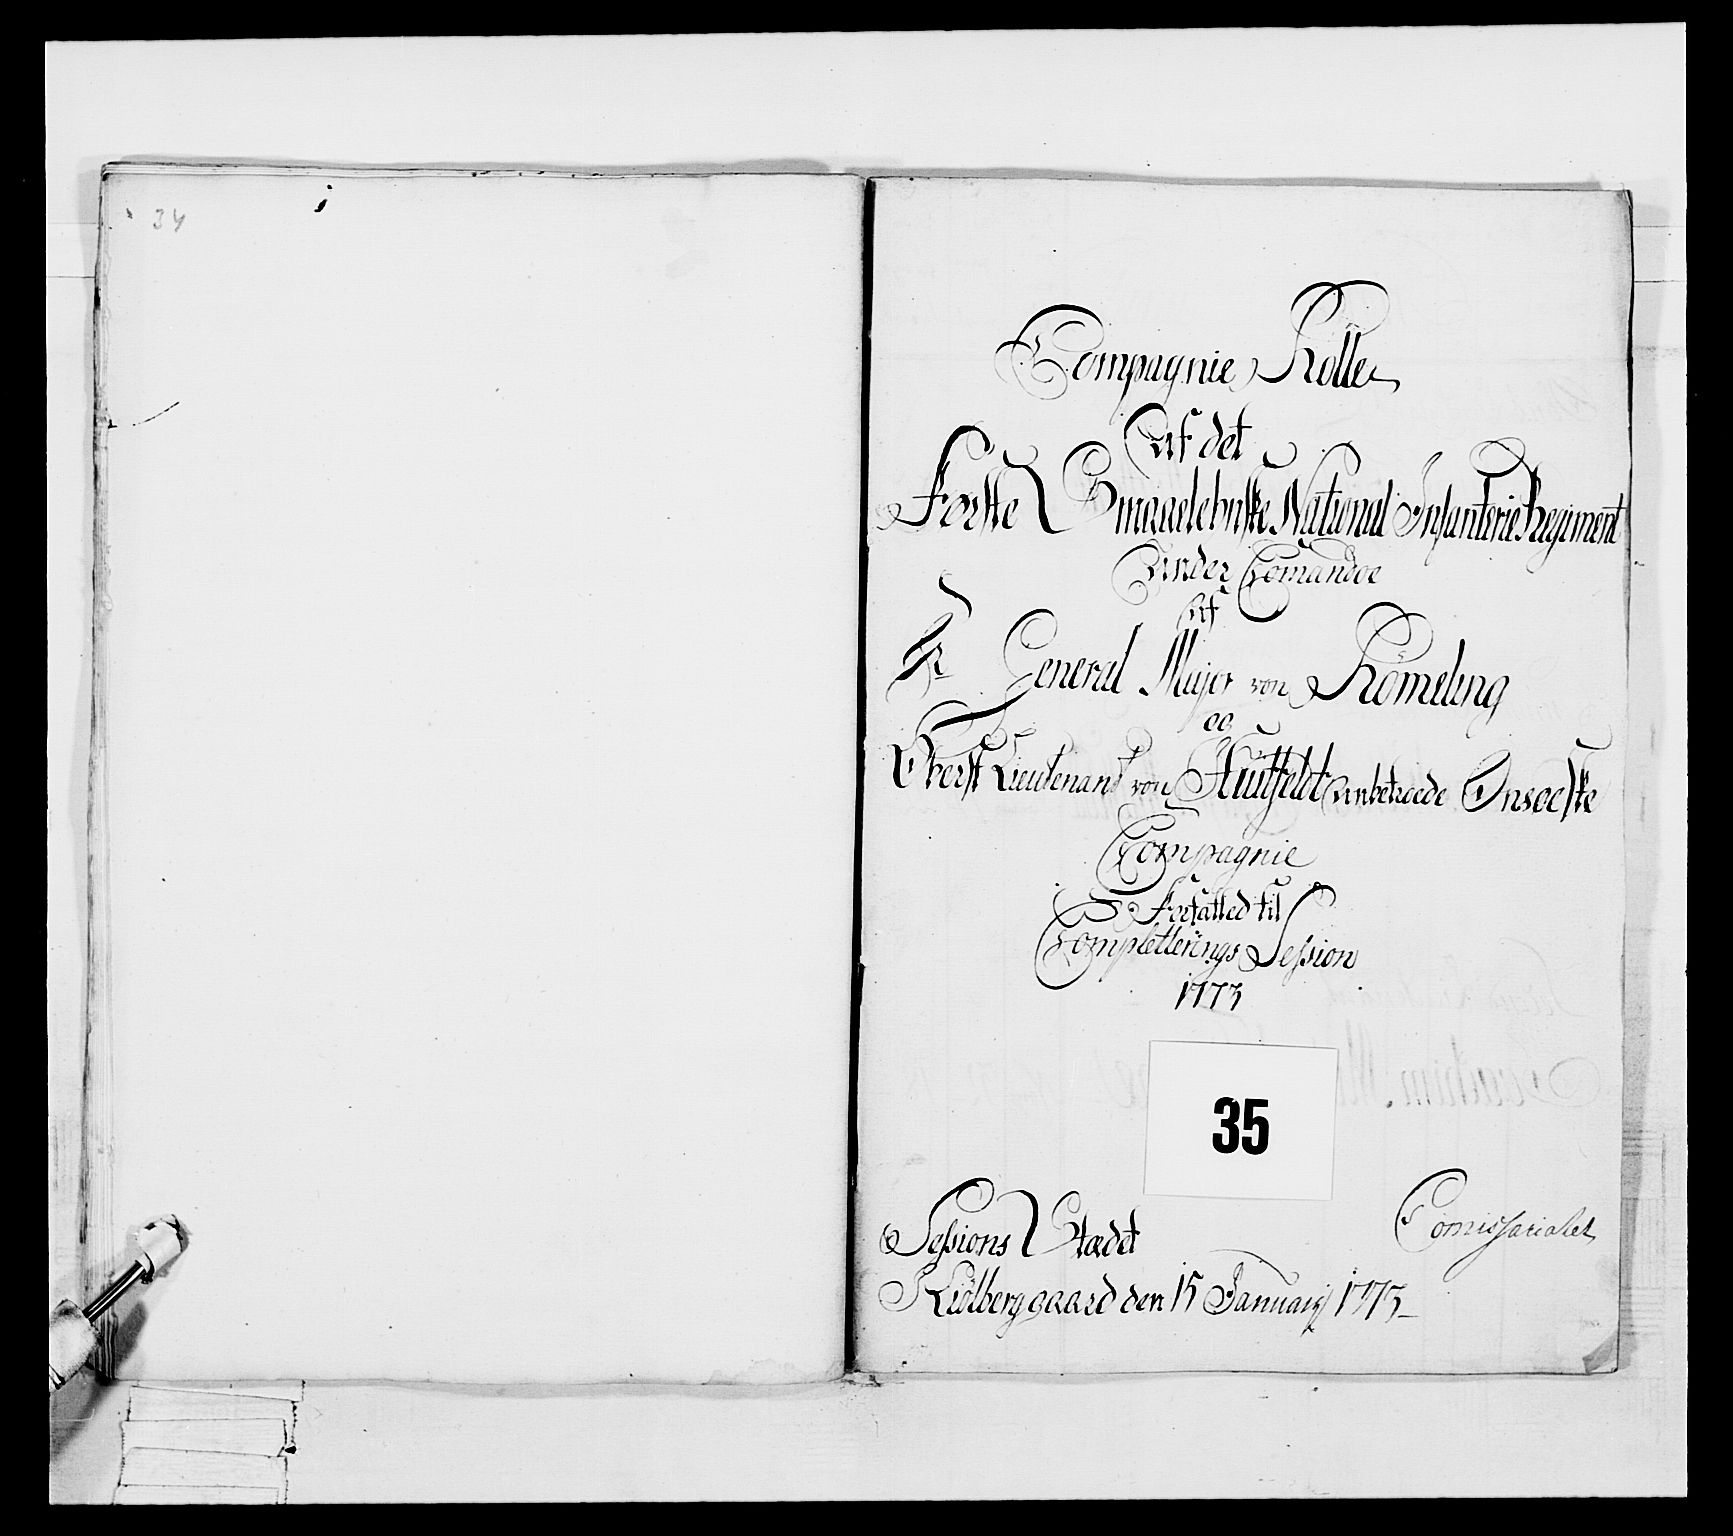 34
Compagnie Rolle
Af det
Første Smaalehnske National Infanterie Regiment
Under Comandoe
Af
Hr General Major von Römeling
og
Oberst Lieutenant von Huitfeldt Anbetroede Onsøeske
Compagnie
Forfatted til
Completterings Session
1773
35
Sessions Stædet
Comissariatet
Kiølberggaard den 15 January 1773